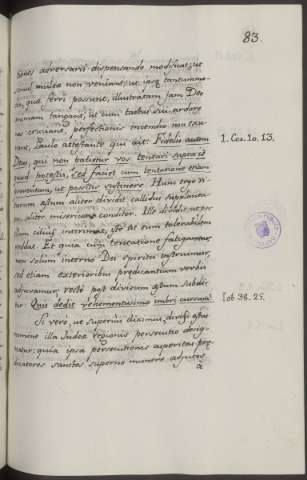 83.
tiones adversarii dispensando modificat; ut
omnes multæ non veniant; ut ipsæ tantummo-
do, quæ ferri possunt, illustratam jam Dei
tangant, ut cum tactus sui ardore
nos cruciant, perfectionis incendio non exu-
rant, Paulo attestante qui ait: Fidelis autem
Deus, qui non patietur vos tentari supra id
quod potestis, sed faciet cum tentatione etiam
proventum, ut possitis sustinere. Hunc ergo ri-
vorum æstum aliter dividit callidus supplanta-
tor, aliter misericors conditor. Ille dividit, ut per
illum citius interimat; iste ut eum tolerabilem
reddat. Et quia cum tentatione fatigamur,
non solum interno Dei spiritu instruimur,
sed etiam exterioribus prædicantium verbis
adjuvamur, recte post divisum æstum subdi-
tur: Quis dedit vehementissimo imbri cursum?
Si vero, ut superius diximus, divisi æstus
nomine illa Judeæ regionis persecutio desig-
natur; quia ipsa persecutionis asperitas præ-
dicatores sanctos superno munere adjutos
a
1. Cor. 10. 13.
Iob 38. 25.